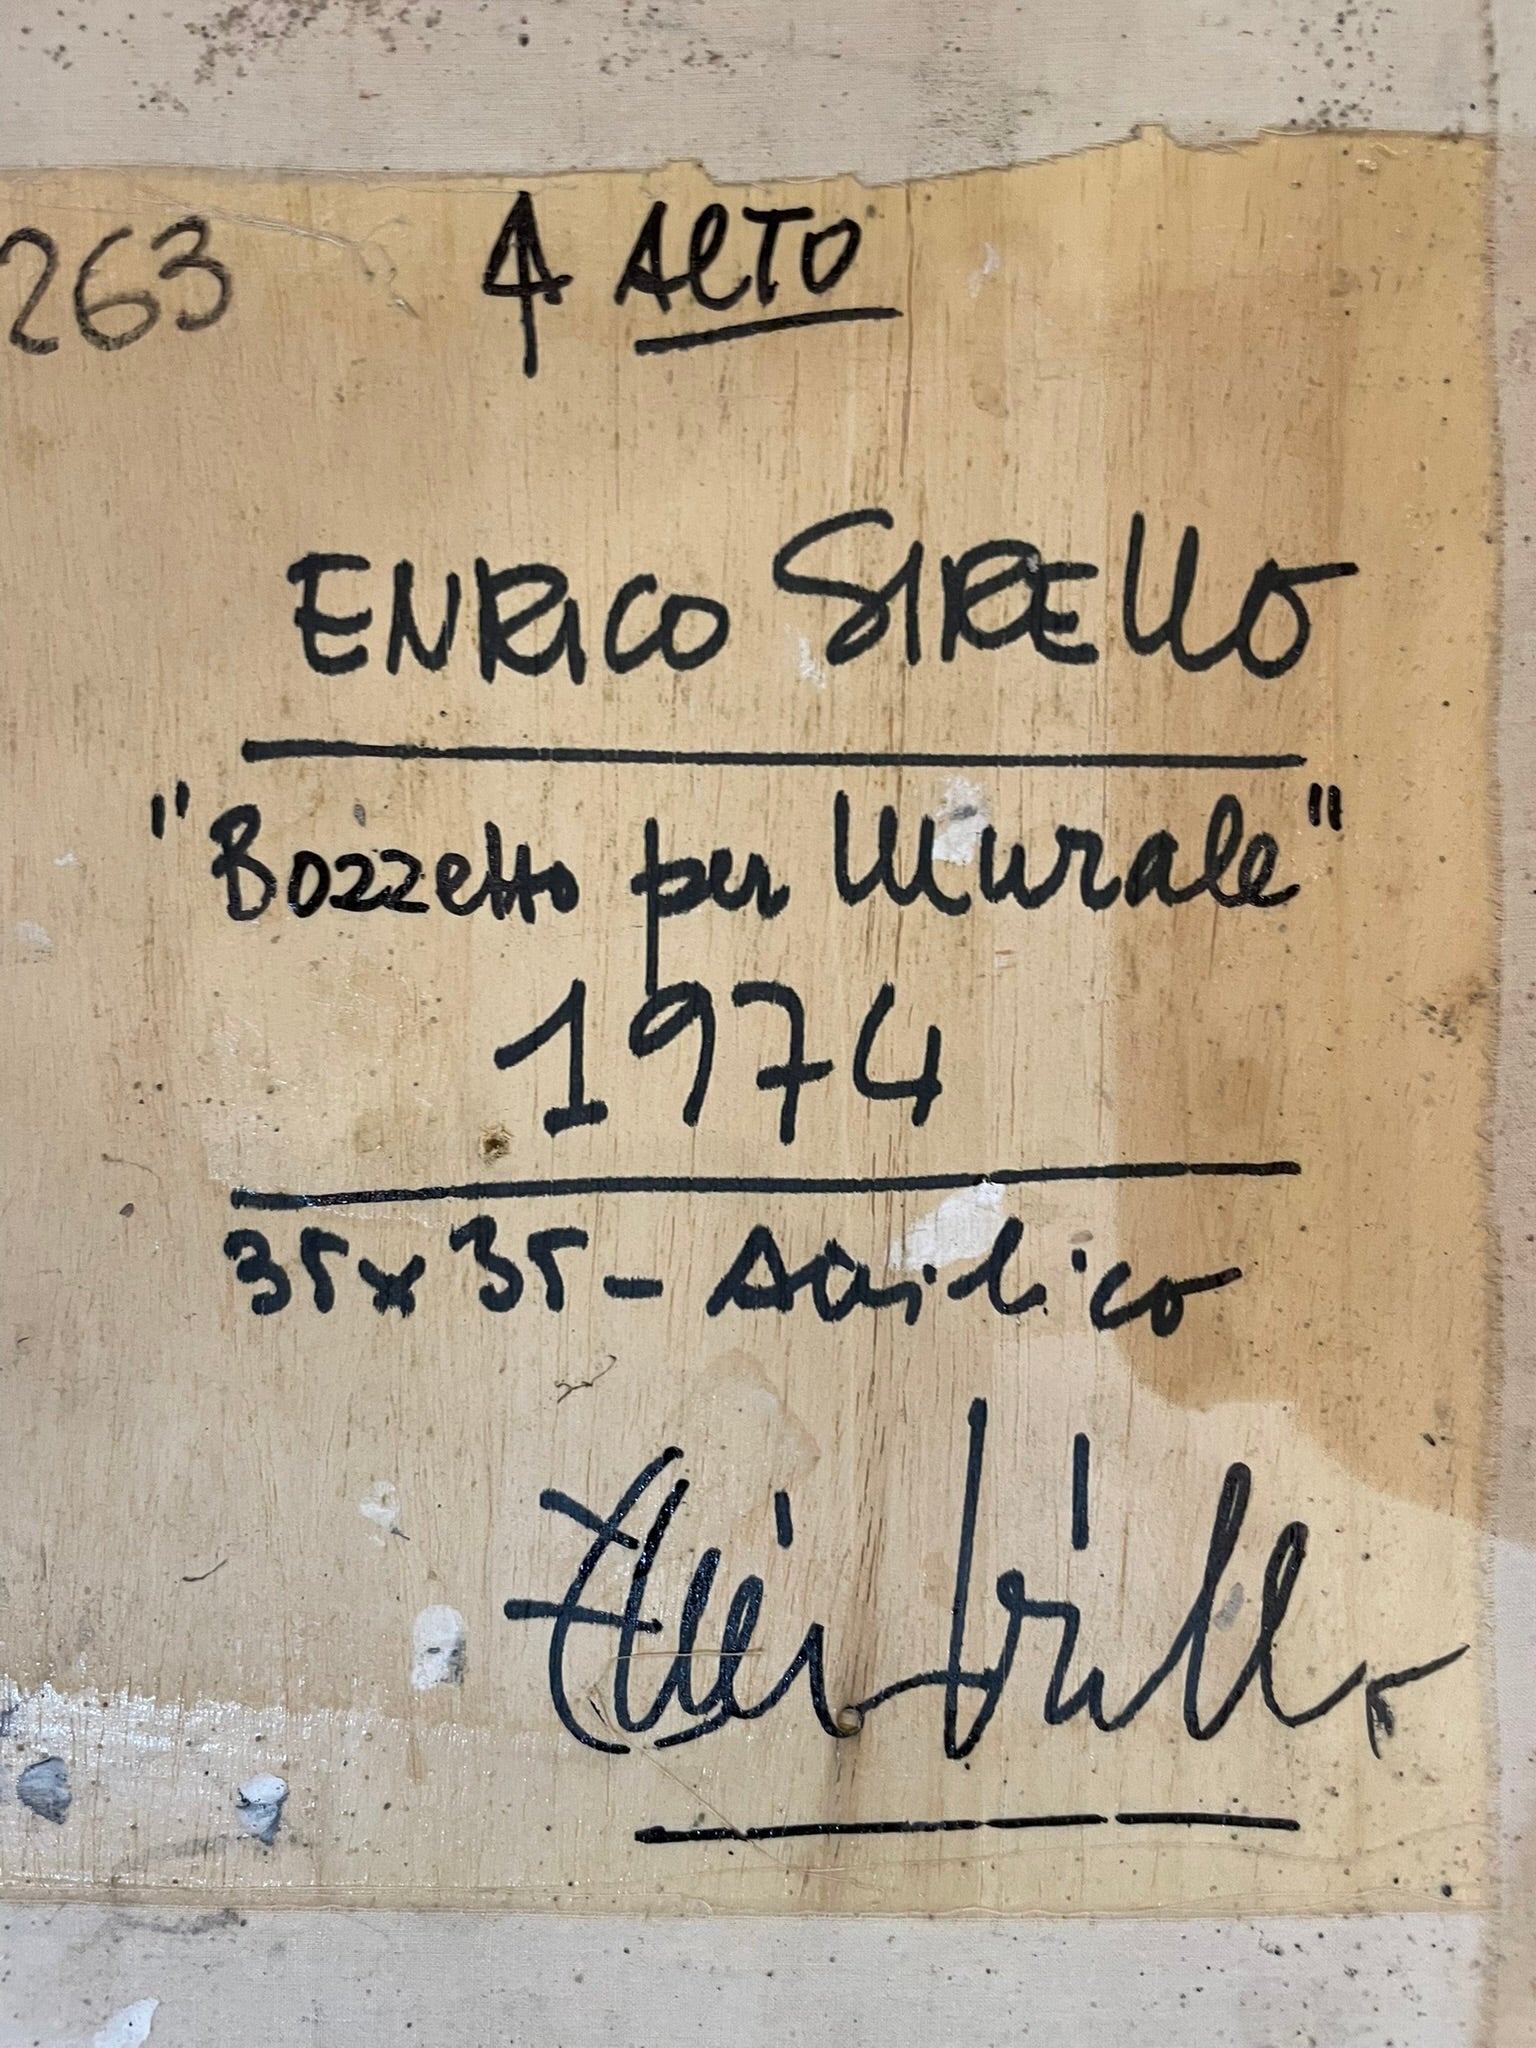 263 ALTO
ENRICO SIRELLO
"Bozzetto per Murale"
1974
35x35 - Acrilico
Enrico Sirello